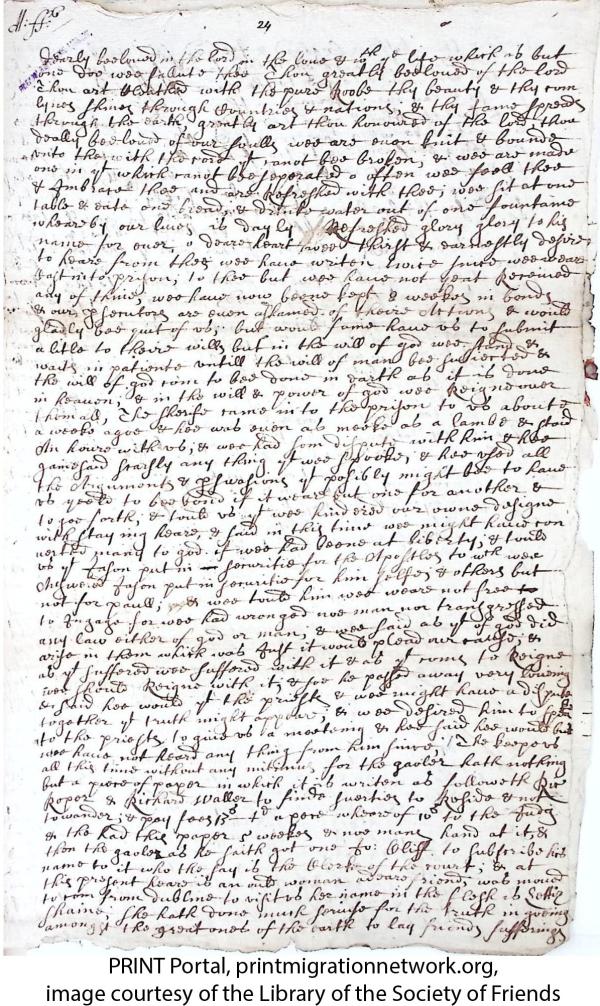 M: ff:6
24
dearly beeloued in the lord in the loue & wth ye life which is but
one doe wee salute thee Thou greatly beeloued of the lord
Thou art Cleathed with the pure Roobe thy beauty & thy com
lynes shines through Countries & nations, & thy fame spreds
through the earth, greatly art thou honoured of the lord, thou
deally beeloued of our soulls wee are euen knit & bounde
vnto thee with the cord yt canot bee broken, & wee are made
one in yt which canot bee seperated o often wee feell thee
& Imbrace thee and are Refreshed with thee, wee sit at one
table & eate one bread, & drinke water out of one fountaine
wheareby our liues is dayly Refreshed glory glory to his
name for euer, o deare heart wee thirst & earnestly desire
to heare from thee wee haue writen twice since wee weare
Cast into prison, to thee but wee haue not yeat Receiued
any of thine, wee haue now beene kept 8 weekes in bonds
& our psecutors are euen ashamed of theire Actions & would
gladly bee quit of vs; but would faine haue vs to submit
a litle to theire wills but in the will of god wee stand &
waits in patience vntill the will of man bee subiected &
the will of god com to bee done in earth as it is done
in heauen, & in the will & power of god wee Reigne ouer
them all, The sherife came into the prison to vs aboute
a weeke agoe & hee was euen as meeke as a lambe & stood
An houre with vs, & wee had som dispute with him & hee
gainesaid scarsly any thing yt wee spooke, & hee vsed all
the Arguments & pswasions yt posibly might bee to haue
vs yeeld to bee bond if it weare but one for another &
to goe forth, & tould vs yt wee hindered our owne designe
with staying heare, & said in this time wee might haue con
uerted many to god if wee had beene at liberty, & tould
vs yt Jason put in securitie for the Apostles to wch wee
Answered Jason put in securitie for him selfe & others but
not for paull, & wee tould him wee weare not free to
to Ingage for wee had wronged noe man nor transgressed
any law either of god or man, & wee said as yt of god did
arise in them which was Just it would plead our cause, &
as yt suffered wee suffered with it & as yt comes to Reigne
wee should Reigne with it, & soe he passed away very loueing
& said hee would yt the priests & wee might haue a dispute
together yt truth might appear, & wee desired him to speke
to the priests to giue vs a meeteing & hee said hee would but
wee haue not heard any thing from him since, The keepers
all this time without any mitimus for the gaoler hath nothing
but a piece of paper in which it is writen as followeth Ric
Roper & Richard Waller to finde suerties to Reside & not
to wander, & pay fees a pece wheare of to the Judg
& the had this paper weekes & noe mans hand at it, &
then the gaoler as he saith got one Jo: Cliff to subscribe his
name to it who the say is the Clerke of the court; & at
this present heare is an oul woman a deare friend, was moued
to com from dubline to visit vs her name in the flesh is Lettis
Shaine, she hath done much seruise for the truth in goeing
amongst the great ones of the earth to lay friends sufferings
PRINT Portal, printmigrationnetwork.org,
image courtesy of the Library of the Society of Friends